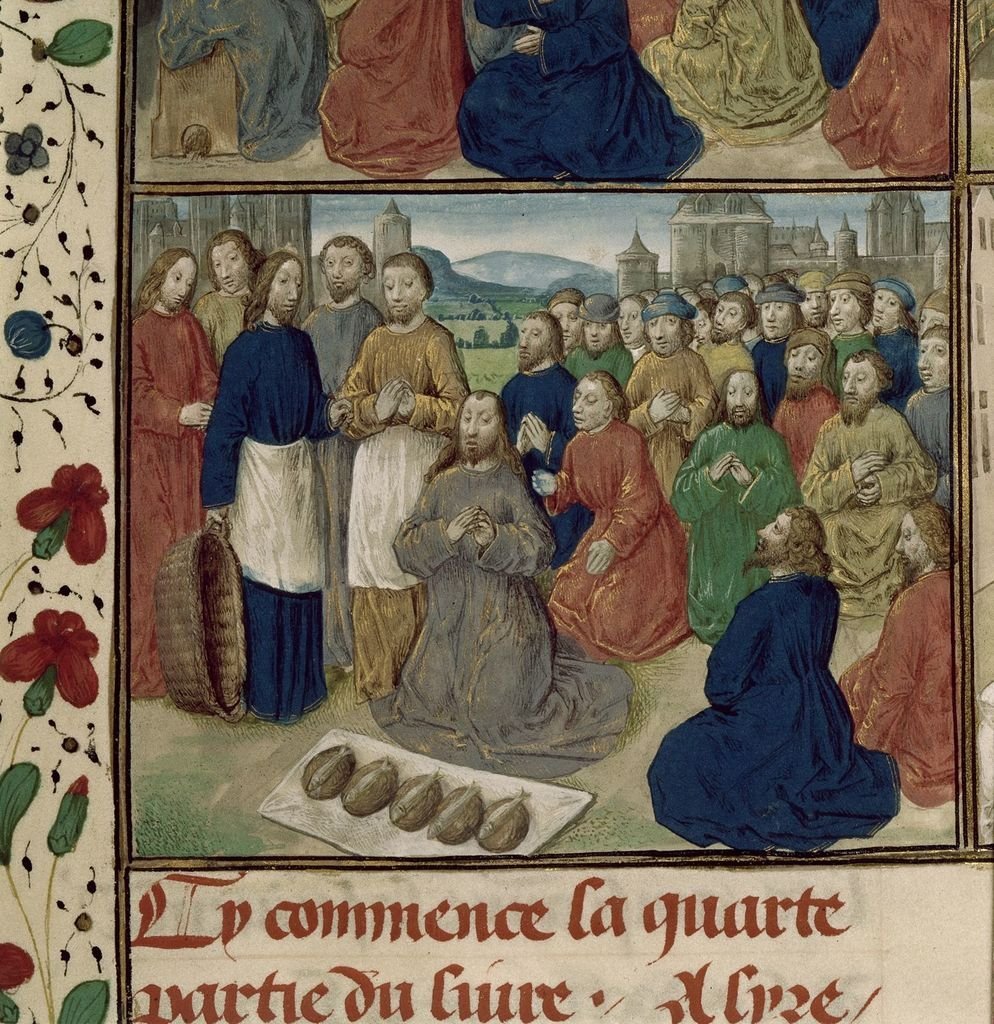 Cy commence la quarte
partie du liure · / A lyre /